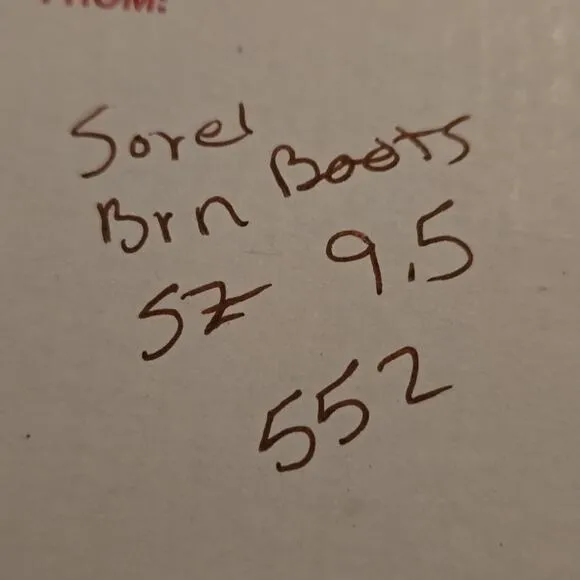 FROM:
Sorel
Brn Boots
Sz 9.5
552